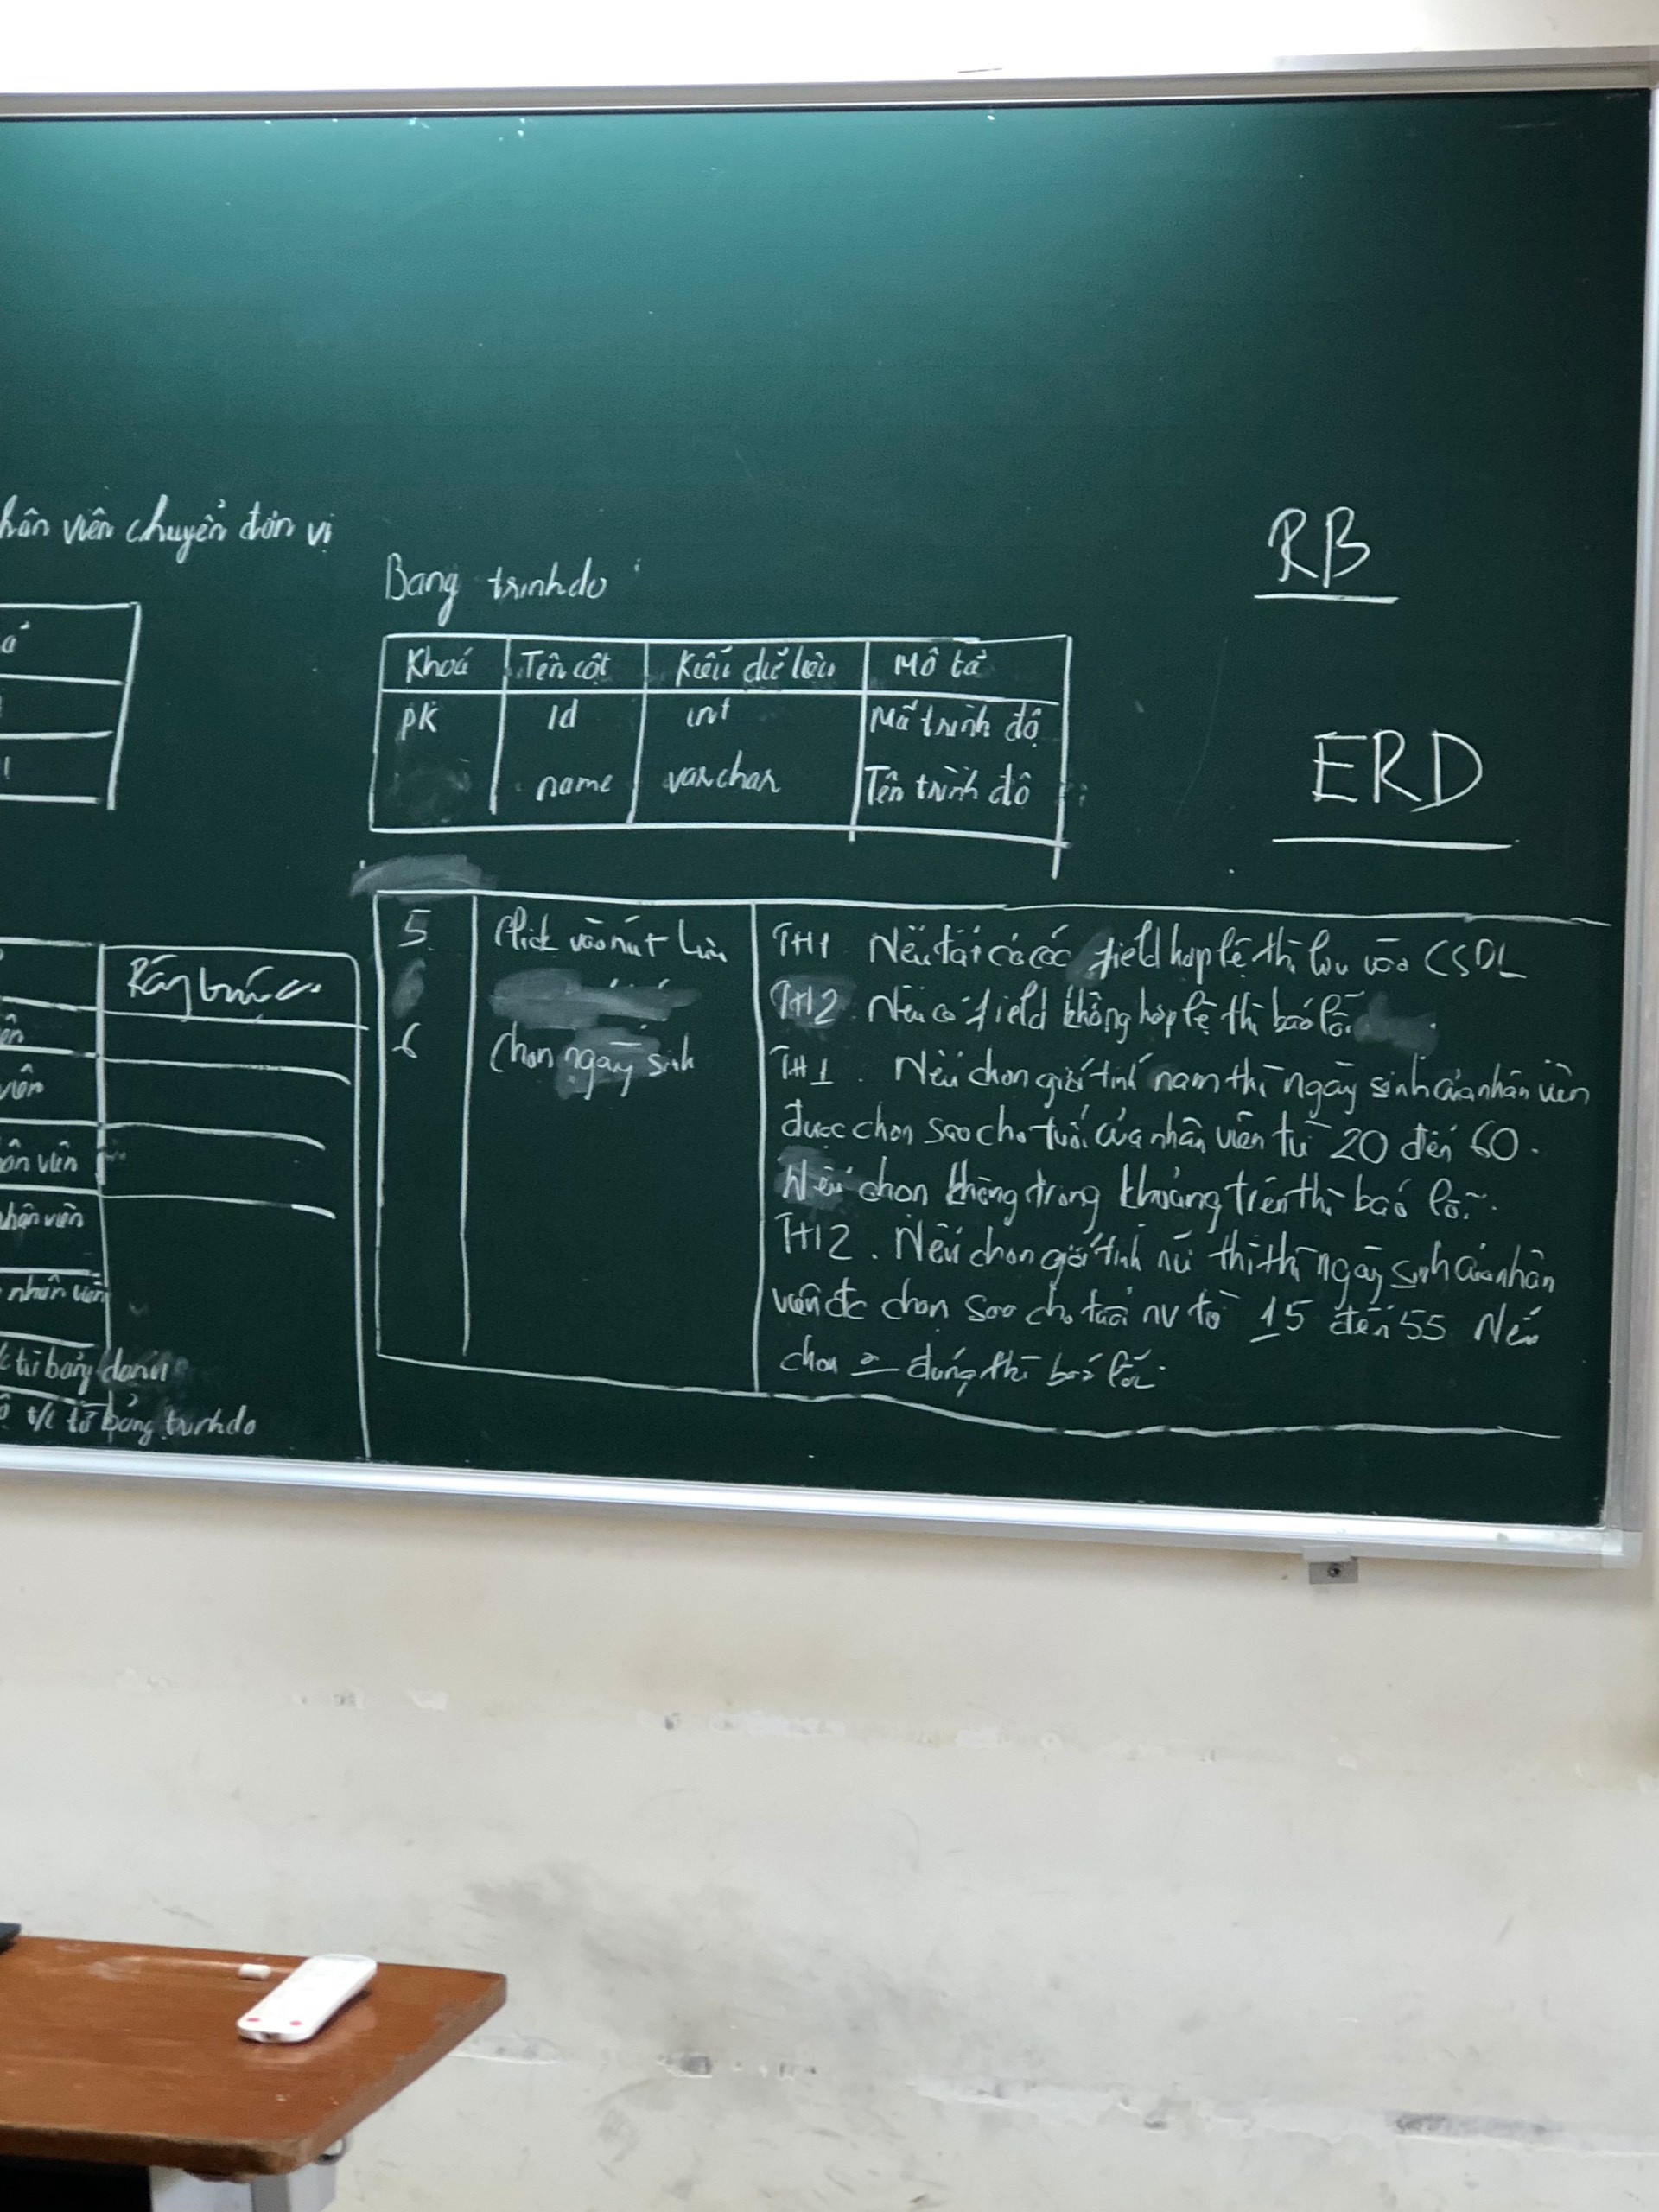 hân viên chuyển đơn vị
RB
Bang trinhdo
ả
Khoá Tên cột Kiểu dữ liệu Mô tả
PK Id int Mã trình độ
name varchar Tên trình độ
ERD
5 Click vào nút Lưu TH1 Nếu tất cả các field hợp lệ thì lưu vào CSDL
TH2 Nếu có field không hợp lệ thì báo lỗi.
6 Chọn ngày sinh TH1. Nếu chọn giới tính nam thì ngày sinh của nhân viên
được chọn sao cho tuổi của nhân viên từ 20 đến 60.
Nếu chọn không trong khoảng trên thì báo lỗi.
TH2. Nếu chọn giới tính nữ thì thì ngày sinh của nhân
viên đc chọn sao cho tuổi nv từ 15 đến 55 Nếu
chọn đúng thì báo lỗi.
Ràng buộc
ên
viên
ân viên
nhân viên
nhân viên
từ bảng
t/c từ bảng trinhdo